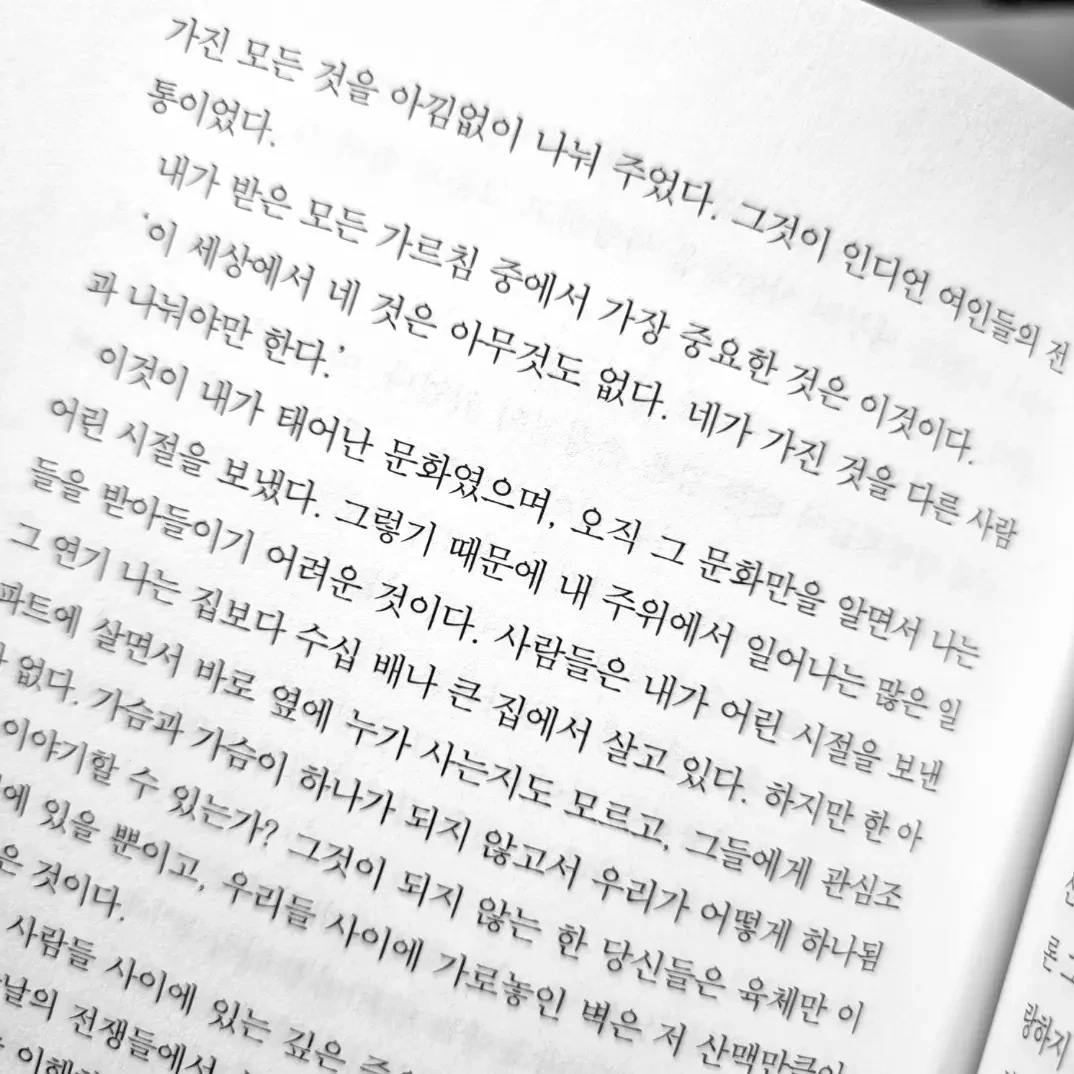 가진 모든 것을 아낌없이 나눠 주었다. 그것이 인디언 여인들의 전
통이었다.
내가 받은 모든 가르침 중에서 가장 중요한 것은 이것이다.
‘이 세상에서 네 것은 아무것도 없다. 네가 가진 것을 다른 사람
과 나눠야만 한다.’
이것이 내가 태어난 문화였으며, 오직 그 문화만을 알면서 나는
어린 시절을 보냈다. 그렇기 때문에 내 주위에서 일어나는 많은 일
들을 받아들이기 어려운 것이다. 사람들은 내가 어린 시절을 보낸
그 연기 나는 집보다 수십 배나 큰 집에서 살고 있다. 하지만 한 아
파트에 살면서 바로 옆에 누가 사는지도 모르고, 그들에게 관심조
없다. 가슴과 가슴이 하나가 되지 않고서 우리가 어떻게 하나됨
이야기할 수 있는가? 그것이 되지 않는 한 당신들은 육체만 이
에 있을 뿐이고, 우리들 사이에 가로놓인 벽은 저
은 것이다.
사람들 사이에 있는 깊은
날의 전쟁들에서
론 그
랑하지